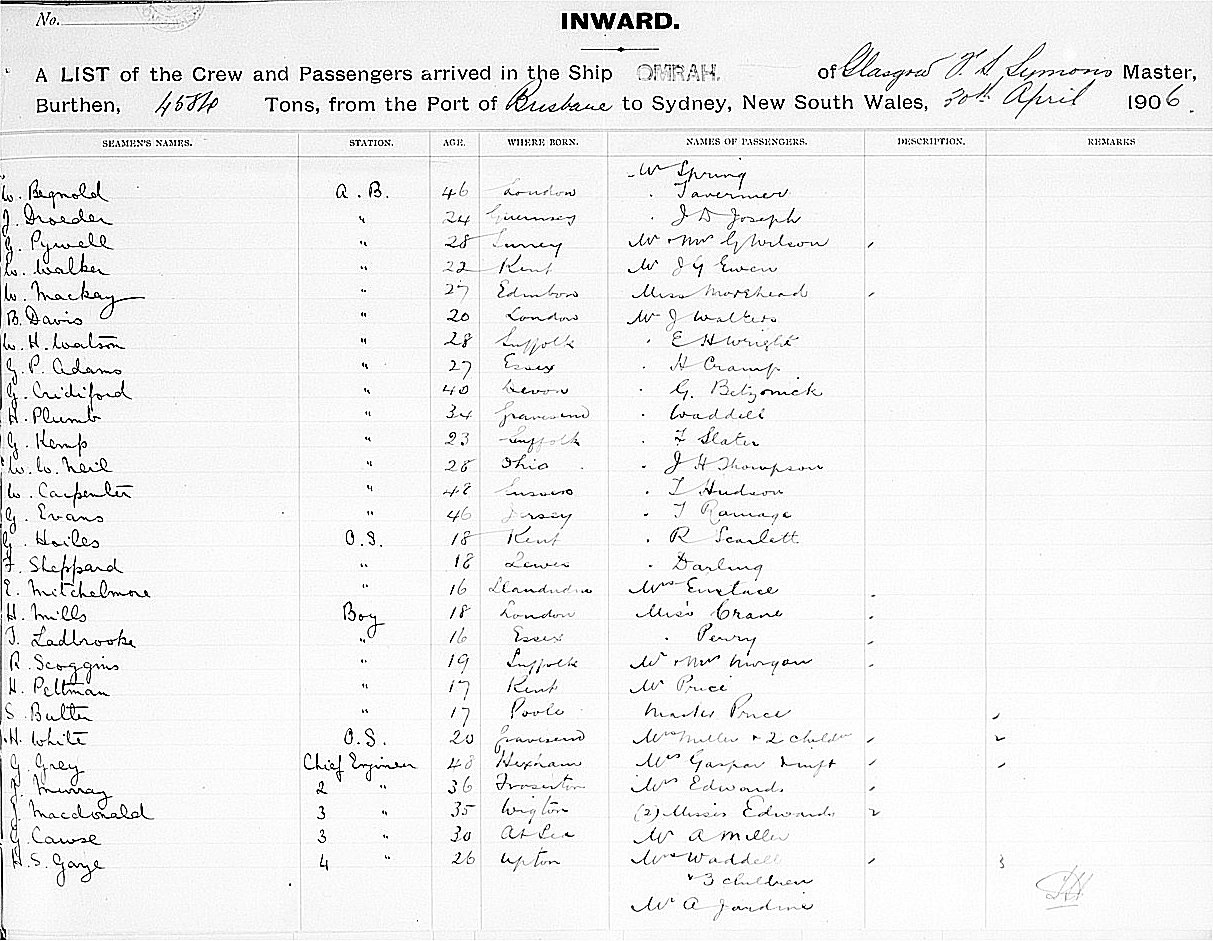 No.
INWARD.
A LIST of the Crew and Passengers arrived in the Ship OMRAH. of Glasgow Symons Master,
Burthen, Tons, from the Port of Brisbane to Sydney, New South Wales, 30th April 1906.
SEAMEN'S NAMES. STATION. AGE. WHERE BORN. NAMES OF PASSENGERS. DESCRIPTION. REMARKS
Mr Spring
W. Begnold A.B. 46 London . Tavermer
J. Droeder " 24 Guernsey . J D Joseph
G. Pywell " 28 Surrey Mr & Mrs G Wilson
W. Walker " 22 Kent Mr J G Ewen
W. Mackay " 27 Edinboro Miss Morehead
B. Davis " 20 London Mr J Walters
W. H. Watson " 28 Suffolk . E H Wright
G. P. Adams " 27 Essex . H Cramp
G. Cridiford " 40 Devon . G.
H. Plumb " 34 Gravesend . Waddell
G. Kemp " 23 Suffolk . F Slater
W. W. Neil " 28 Ohio . J H Thompson
W. Carpenter " 48 . T Hudson
G. Evans " 46 Jersey . T Ramage
G. Hailes O.S. 18 Kent . R Scarlett
F. Sheppard " 18 Lewes . Darling
E. Mitchelmore " 16 Llandudno Mrs Eustace
H. Mills Boy 18 London Miss Crane
T. Ladbrooke " 16 Essex . Perry
R. Scoggins " 19 Suffolk Mr & Mrs Morgan
H. Peltman " 17 Kent Mr Price
S. Butler " 17 Poole Master Price
H. White O.S. 20 Gravesend Mrs Miller & 2 childn 2
G. Grey Chief Engineer 48 Hexham Mrs Gaspar
J. Murray 2 " 36 Mrs Edwards
J. Macdonald 3 " 35 Wigton (2) Misses Edwards 2
G. Cawse 3 " 30 At Sea Mr A Miller
H. S. Gaye 4 " 26 Upton Mrs Waddell 3
& 3 children
Mr A Jardine